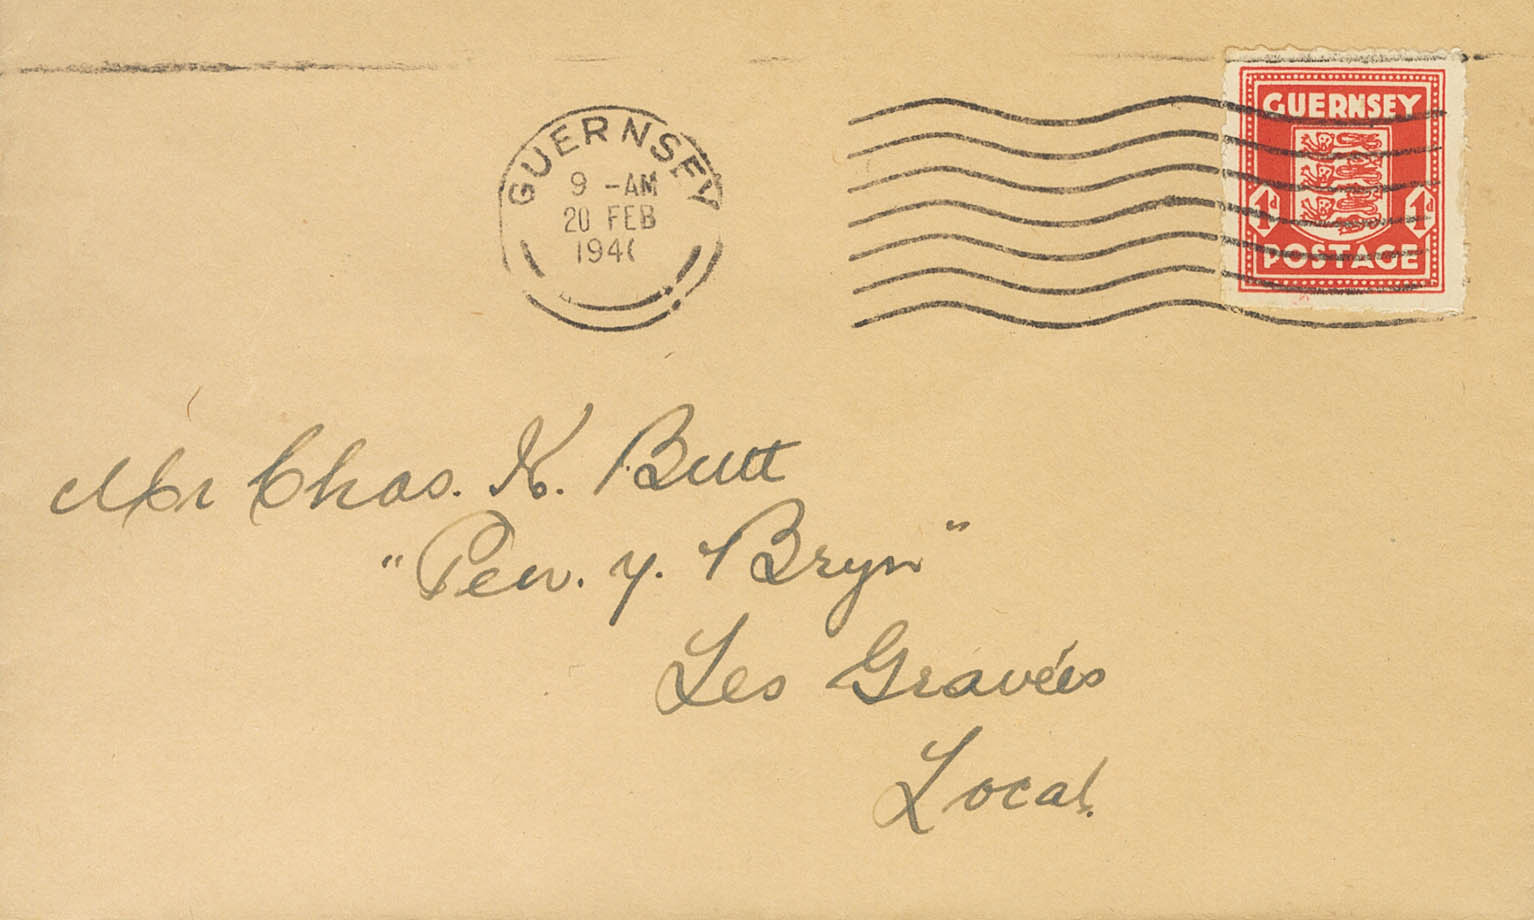 GUERNSEY
9 -AM
20 FEB
194
GUERNSEY
1d 1d
POSTAGE
Mr Chas. K. Butt
"Pen. y. Bryn"
Les Gravées
Local.